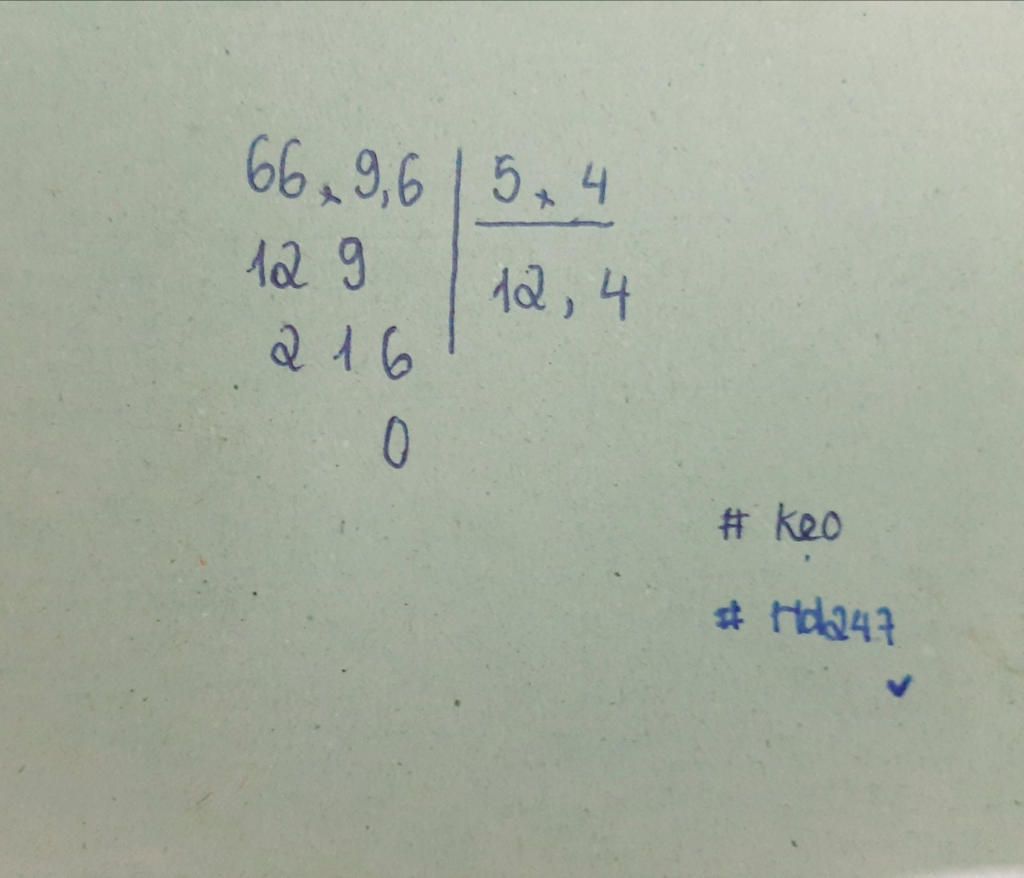 66, 9,6 | 5, 4
12 9 | 12, 4
2 1 6
0
# Kẹo
# Hdz247